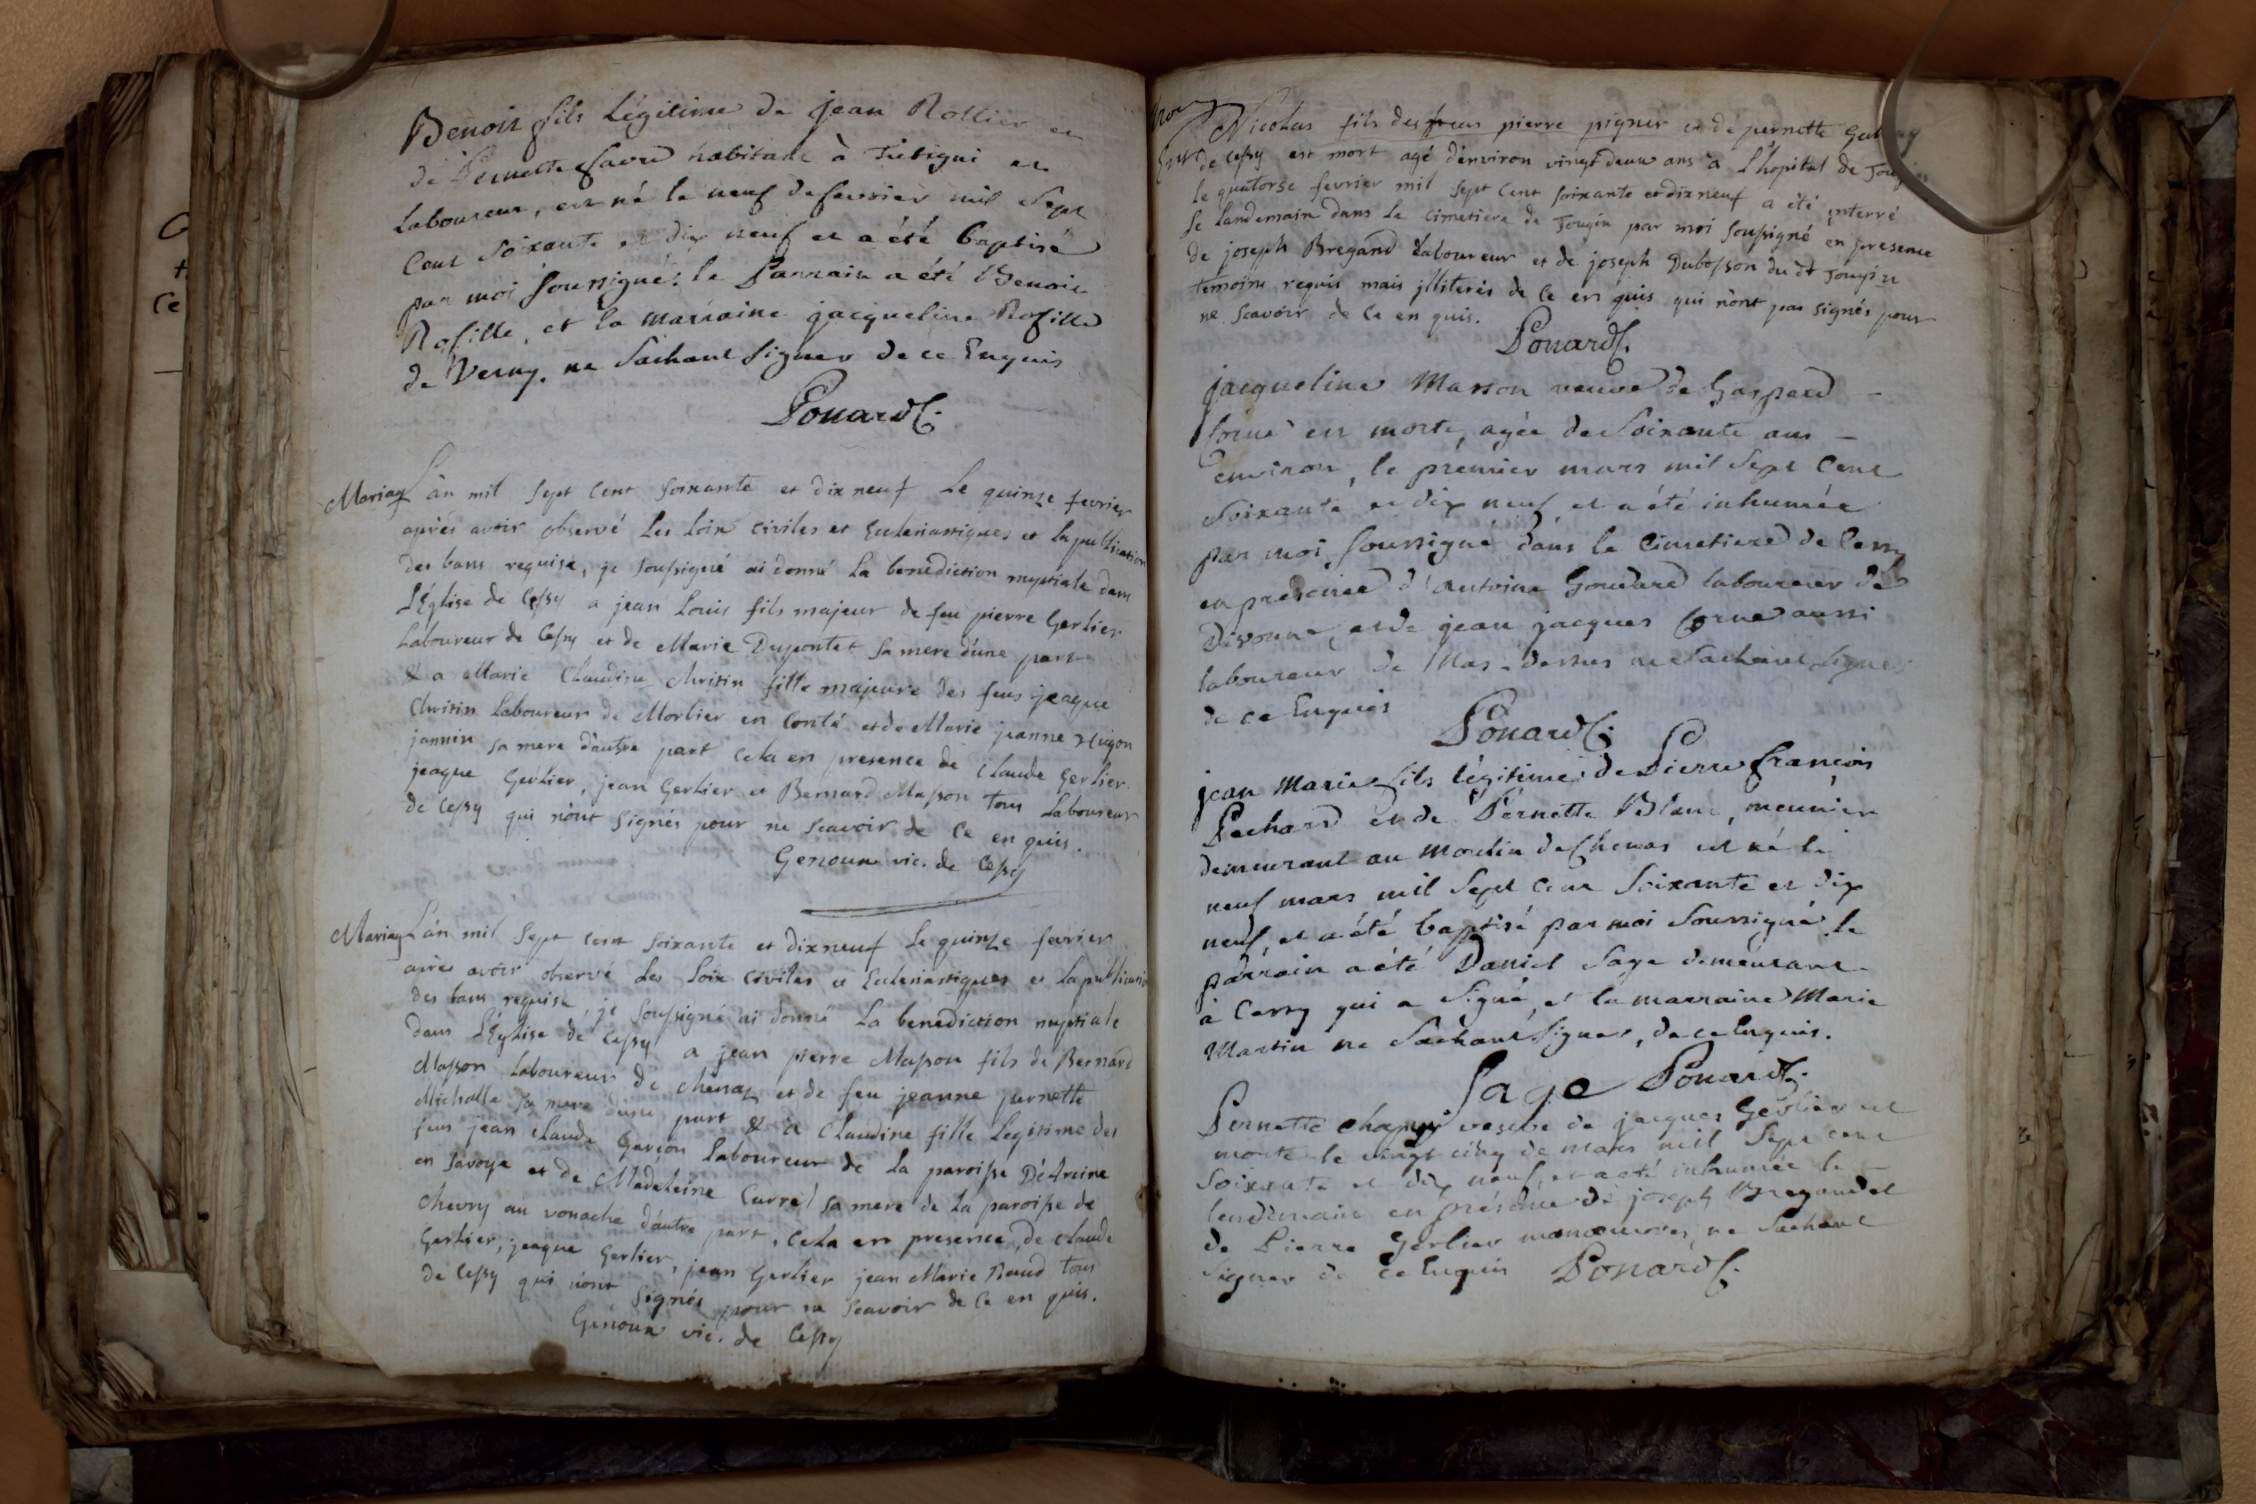 Benoit fils légitime de jean Rollier et
de Pernette favre habitant à Tutigni et
laboureur, est né le neuf de fevrier mil sept
cent soixante et dix neuf et a été baptisé
par moi soussigné: le Parrain a été Benoit
Rosille, et la marraine jacqueline Rosille
de Verny. ne sachant signer de ce Enquis
Ponard C.
Mariag L'an mil sept cent soixante et dix neuf Le quinze fevrier
après avoir observé Les Loix civiles et Ecclesiastiques et la publication
des bans requise, je soussigné ai donné La benediction nuptiale dans
L'Église de Cessy a jean Louis fils majeur de feu pierre Gerlier
Laboureur de Cessy et de Marie Dupontet sa mere d'une part
& a Marie Claudine Christin fille majeure des feus jeaque
Christin Laboureur de Morbier en Conté et de Marie jeanne Hugon
jannin sa mere d'autre part cela en presence de Claude Gerlier
jeaque Gerlier, jean Gerlier et Bernard Masson tous Laboureur
de Cessy qui n'ont signés pour ne scavoir de ce en quis.
Genoux vic. de Cessy
Mariag L'an mil sept cent soixante et dixneuf Le quinze fevrier
après avoir observé Les Loix civiles et Ecclesiastiques et La publication
des bans requise, je soussigné ai donné La benediction nuptiale
dans L'Église de Cessy a jean pierre Masson fils de Bernard
Masson Laboureur de Chenaz et de feu jeanne pernette
Michalle sa mere d'une part & a Claudine fille Legitime des
feus jean claude Garçon Laboureur de La paroisse
en Savoye et de Madeleine Curral sa mere de La paroisse de
Chevry au vouache d'autre part, cela en presence de claude
Gerlier, jeaque Gerlier, jean Gerlier jean Marie Raud tous
de Cessy qui n'ont signés pour ne scavoir de ce en quis.
Genoux vic. de Cessy
Nicolas fils des feus pierre pigner et de pernette
de Cessy est mort agé d'environ vingt deux ans a L'hopital de
le quatorse fevrier mil sept cent soixante et dix neuf a été interré
le landemain dans Le cimetiere de Tougin par moi soussigné en presence
de joseph Bregand Laboureur et de joseph Dubosson du dt Tougin
temoins requis mais jlliterés de ce en quis qui n'ont pas signés pour
ne scavoir de ce en quis.
Ponard C.
jacqueline Masson veuve de Gaspard -
Cornu est morte, agée de soixante ans -
environ, le premier mars mil sept cent
soixante et dix neuf, et a été inhumée
par moi soussigné dans le cimetiere de Cessy
en presence d'antoine Goudard laboureur de
Divonne, et de jean jacques Cornu aussi
laboureur de Mas-dessus ne sachant signer
de ce Enquis
Ponard C.
jean Marie fils légitime de Pierre françois
Pechard et de Pernette Blanc, meunier
demeurant au Moulin de Chenas est né le
neuf mars mil sept cent soixante et dix
neuf, et a été baptisé par moi soussigné. le
parrain a été Daniel Sage demeurant
à Cessy qui a signé, et la marraine Marie
Martin ne sachant signer, de ce Enquis.
Sage Ponard C.
Pernette chapuy vesve de jacques Gerlier est
morte le vingt cinq de mars mil sept cent
soixante et dix neuf, et a été inhumée le -
lendemain en présence de joseph Bregand et
de Pierre Gerlier manoeuvres, ne sachant
signer de ce Enquis Ponard C.